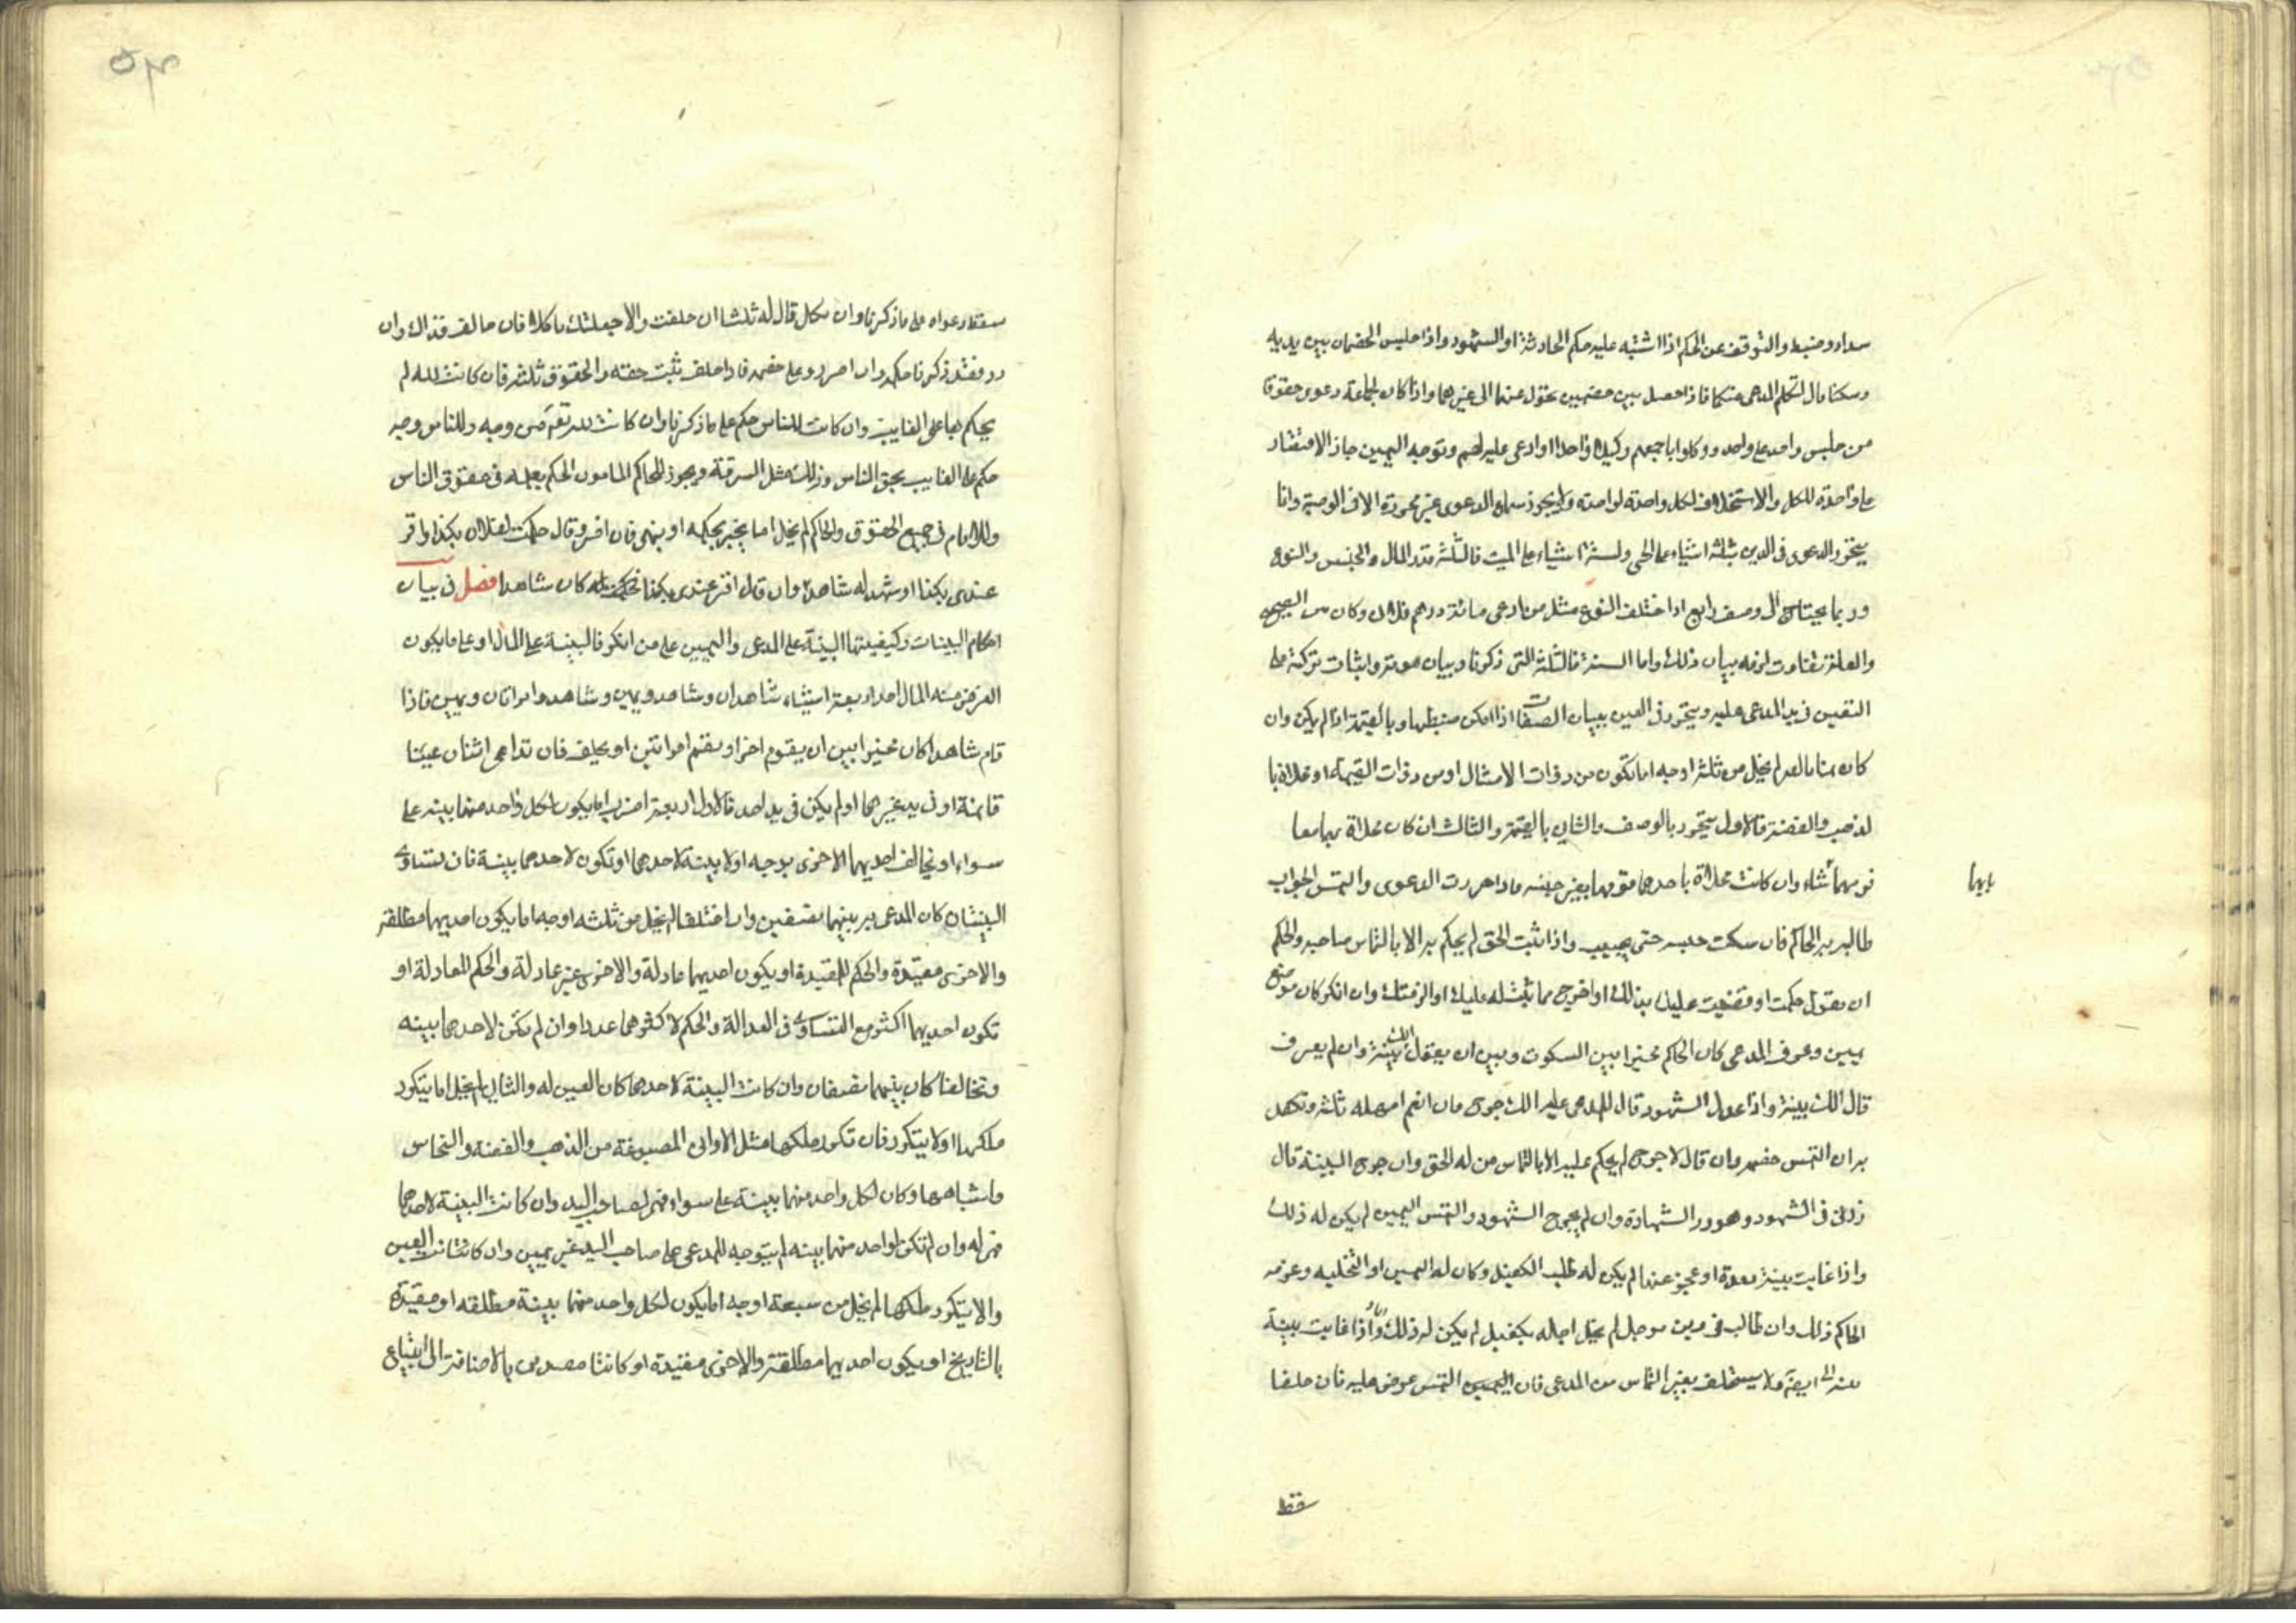 سدادو ضبط والتوقف عن الحكم اذا اشتبه عليه حكم الحادثة او الشهود واذا جلس الخصمان بين يديه
وسكتا قال لتكلم المدعى منكما فاذا حصل بين خصمين تحول عنهما الى غيرهما واذا كان لجماعة دعوى حقوقا
من جلس واحد على واحد ووكلوا باجمعهم وكيلا واحدا وادعى عليه لهم وتوجه اليمين جاز الاقتصار
على واحدة للكل والاستحلاف لكل واحدة لواحدة ولا يجوز سماع الدعوى غير محررة الا فى الوصية وانما
يتحرر الدعوى فى الدين بثلثة اشياء على الحى ولستة اشياء على الميت فالثلثة قدر المال والجنس والنوع
وربما يحتاج الى وصف رابع اذا اختلف النوع مثل من ادعى مائة درهم فلان وكان من الصحيح
والعلة تفاوت لزمه بيان ذلك واما الستة فالثلثة التى ذكرنا وبيان موته واثبات تركة على
التعين فى يد المدعى عليه ويتحرر فى العين ببيان الصفات اذا امكن ضبطها وبالقيمة اذا لم يكن وان
كان منا بالعد لم يخل من ثلثة اوجه اما تكون من ذوات الامثال او من ذوات القيمة او محلاة با
لذهب والفضة فالاول يتحرر بالوصف والثانى بالقيمة والثالث ان كان محلاة بهما معا
قومهما شاء وان كانت محلاة باحدهما قومها بغير جنسه فاذا حررت الدعوى والتمس الجواب
بايهما
طالبه به الحاكم فان سكت حبسه حتى يجيب واذا ثبت الحق لم يحكم به الا بالتماس صاحبه والحكم
ان يقول حكمت او قضيت عليك بذلك او اخرج مما ثبت له عليك او الزمتك وان انكر كان موضع
يمين وعرف المدعى كان الحاكم مخيرا بين السكوت وبين ان يقول الك بينة وان لم يعرف
قال الك بينة واذا عدل الشهود قال للمدعى عليه الك جرح فان انعم امهله ثلثة وتكفل
به ان التمس خصمه وان قال لا جرح لم يحكم عليه الا بالتماس من له الحق وان جرح البينة قال
زدنى فى الشهود وهو ورد الشهادة وان لم يجرح الشهود والتمس اليمين لم يكن له ذلك
واذا غابت بينة معدة او عجز عنها لم يكن له طلب الكفيل وكان له اليمين او التخليه وعرفه
الحاكم ذلك وان طالب فى دين موجل لم يحل اجله بكفيل لم يكن له ذلك واذا غابت بينة
منه الى ايضا ولا يستحلف بغير التماس من المدعى فان اليمين التمس عرض عليه فان حلفا
سقط
سقط دعواه على ما ذكرنا وان نكل قال له ثلثا ان حلفت والا جعلتك ناكلا فان حالف فذاك وان
رد فقد ذكرنا حكمه وان اصر رد على خصمه فاذا حلف ثبت حقه والحقوق ثلثة فان كانت لله لم
يحكم بها على الغايب وان كانت للناس حكم على ما ذكرنا وان كانت لله تعالى من وجه وللناس وجه
حكم على الغايب بحق الناس وذلك مثل السرقة ويجوز للحاكم المامون الحكم بعلمه فى حقوق الناس
وللامام فى جميع الحقوق والحاكم لم يخل اما يخبر بحكمه او ينهى فان اخبر وقال حكمت لفلان بكذا واقر
عندى بكذا او شهد له شاهدا وان قال اقر عندى بكذا كان شاهدا فصل فى بيان
احكام البينات وكيفيتها البينة على المدعى واليمين على من انكر فالبينة على المال او على ما يكون
الغرض منه المال احد اربعة اشياء شاهدان وشاهد ويمين وشاهد وامراتان ويمين فاذا
قام شاهدا كان مخيرا بين ان يقوم اخر او يقيم امراتين او يحلف فان تداعى اثنان عينا
قائمة او فى يد غيرهما او لم يكن فى يد احد فالاول اربعة اضرب اما يكون لكل واحد منهما بينة على
سواء او تخالف احديهما الاخرى بوجه او لا بينة لاحدهما او تكون لاحدهما بينة فان تساوى
البينتان كان المدعى به بينهما نصفين وان اختلفا لم يخل من ثلثه اوجه اما يكون احديهما مطلقة
والاخرى مقيدة والحكم للمقيدة او يكون احديهما عادلة والاخرى غير عادلة والحكم للعادلة او
تكون احديهما اكثر مع التساوى فى العدالة والحكم لاكثرهما عددا وان لم تكن لاحدهما بينه
وتحالفا كان بينهما نصفان وان كانت البينة لاحدهما كان العين له والثانى لم يخل اما يتكرر
ملكها او لا يتكرر فان تكرر ملكها مثل الاوانى المصوغة من الذهب والفضة والنحاس
واشباهها وكان لكل واحد منهما بينة على سواء فهى لصاحب اليد وان كانت البينة لاحدهما
فهى له وان لم تكن لواحد منهما بينه لم يتوجه للمدعى على صاحب اليد غير يمين وان كانت العين
والا يتكرر ملكها لم يخل من سبعة اوجه اما يكون لكل واحد منهما بينة مطلقه او مقيدة
بالتاريخ او يكون احديهما مطلقة والاخرى مقيدة او كانتا مقيدتين بالاضافة الى البتياع